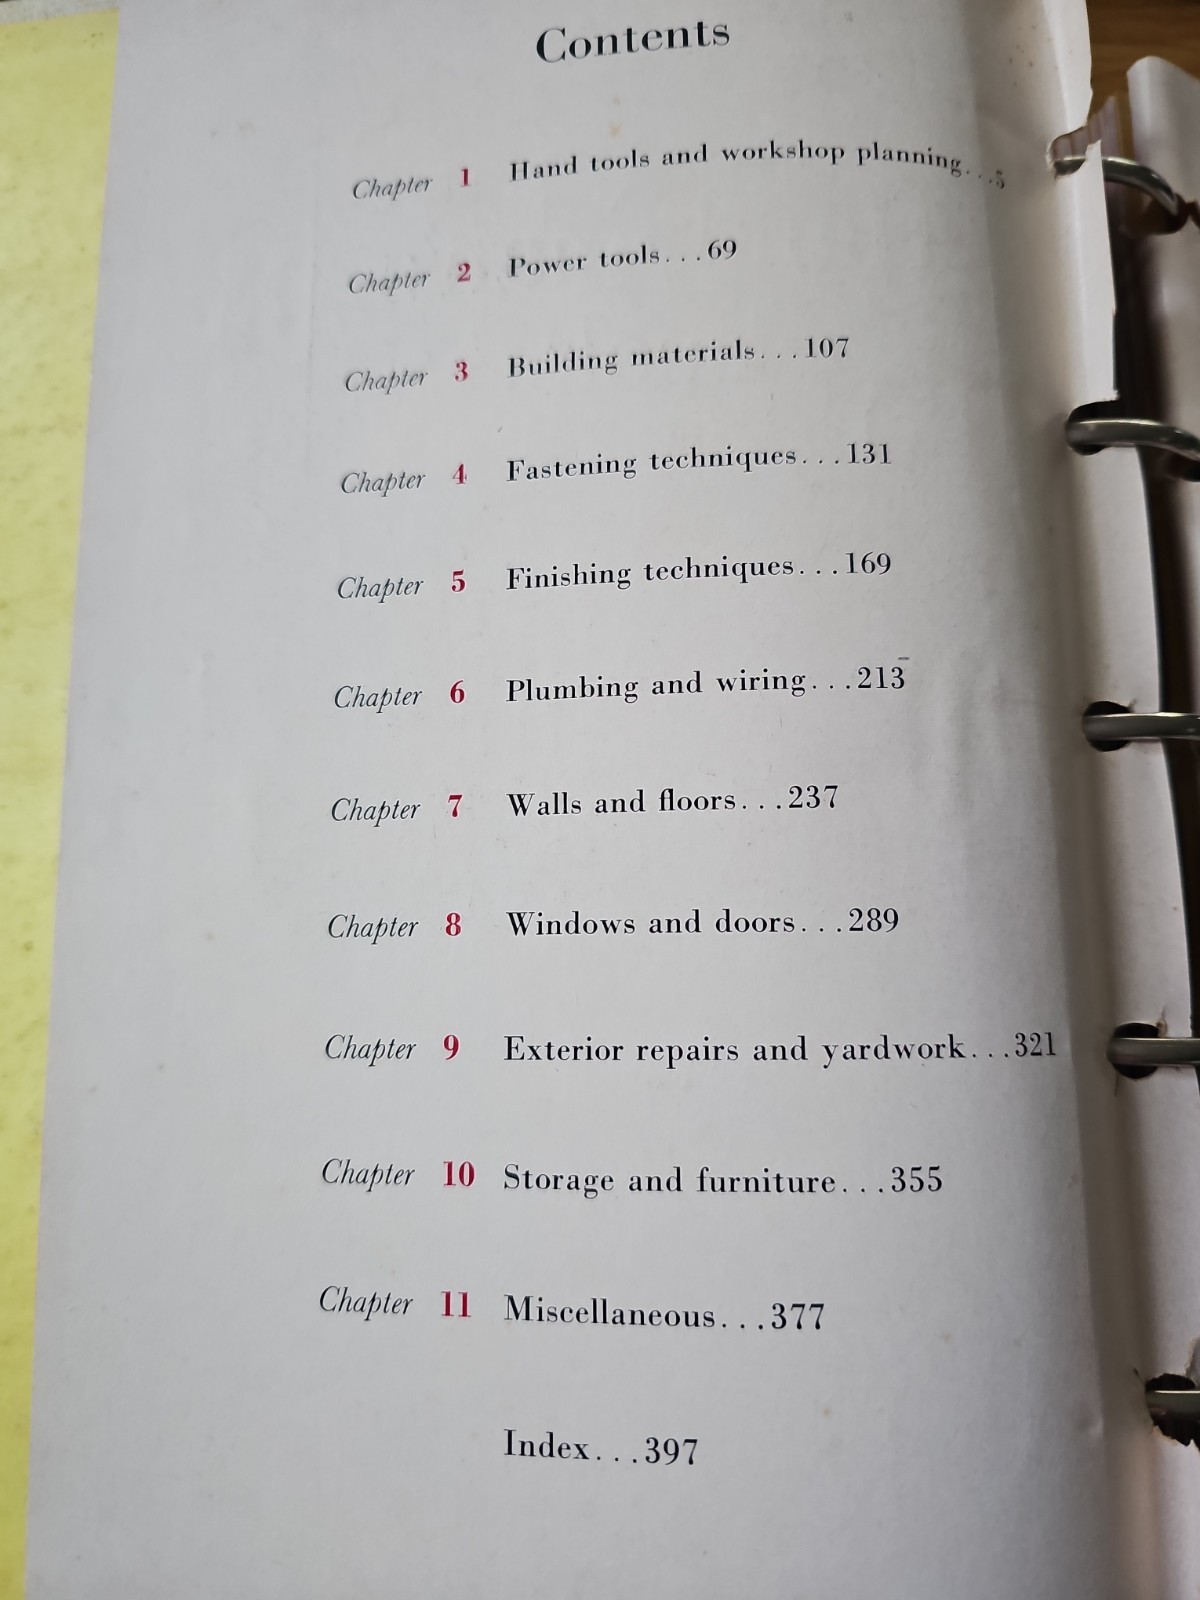 Contents
Chapter 1 Hand tools and workshop planning...5
Chapter 2 Power tools...69
Chapter 3 Building materials...107
Chapter 4 Fastening techniques...131
Chapter 5 Finishing techniques...169
Chapter 6 Plumbing and wiring...213
Chapter 7 Walls and floors...237
Chapter 8 Windows and doors...289
Chapter 9 Exterior repairs and yardwork...321
Chapter 10 Storage and furniture...355
Chapter 11 Miscellaneous...377
Index...397